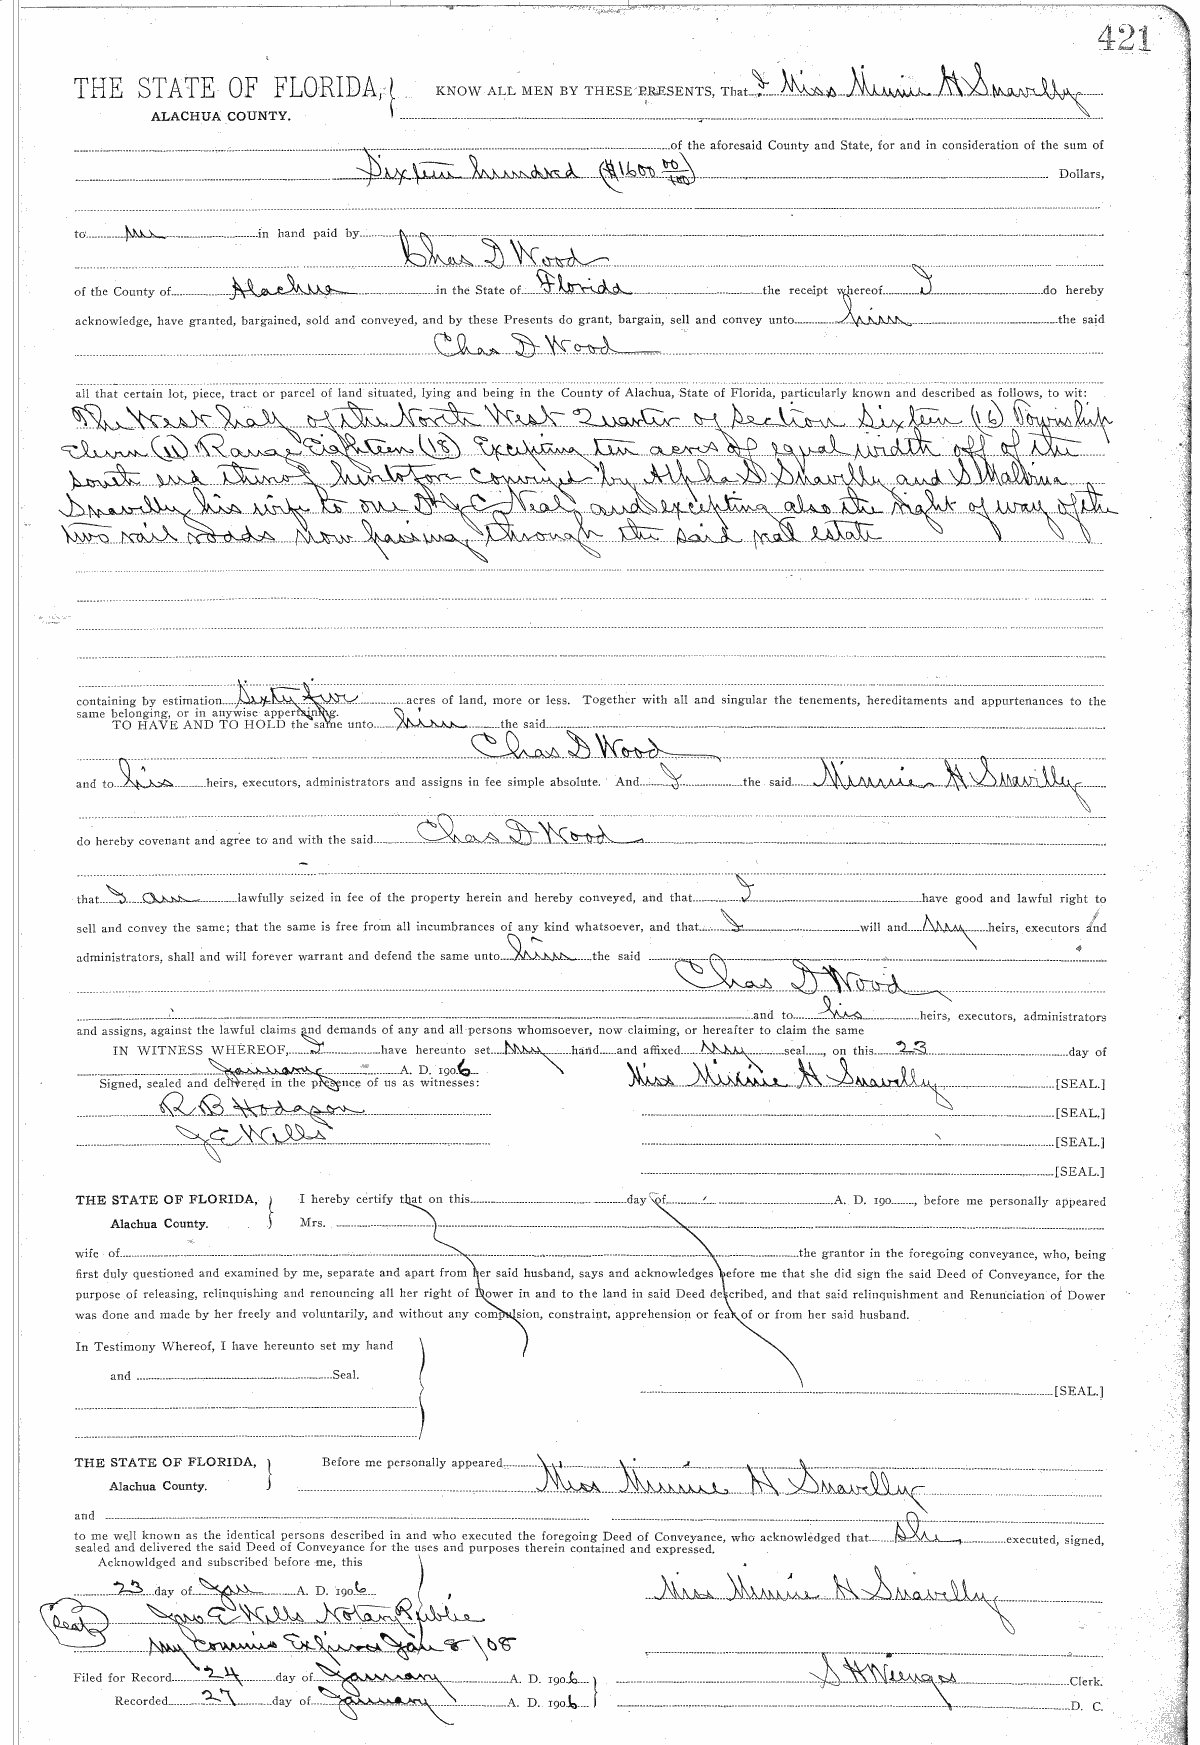 421
THE STATE OF FLORIDA, } KNOW ALL MEN BY THESE PRESENTS, That I Miss Minnie H Snavelly
ALACHUA COUNTY.
of the aforesaid County and State, for and in consideration of the sum of
Sixteen hundred ($1600 00/100) Dollars,
to me in hand paid by
Chas D Wood
of the County of Alachua in the State of Florida the receipt whereof I do hereby
acknowledge, have granted, bargained, sold and conveyed, and by these Presents do grant, bargain, sell and convey unto him the said
Chas D Wood
all that certain lot, piece, tract or parcel of land situated, lying and being in the County of Alachua, State of Florida, particularly known and described as follows, to wit:
The West half of the North West Quarter of Section Sixteen (16) Township
Eleven (11) Range Eighteen (18) Excepting ten acres of equal width off of the
south end thereof heretofore conveyed by Alpha S Snavelly and S Malvina
Snavelly his wife to one C Neal, and excepting also the right of way of the
two rail roads now passing through the said real estate
containing by estimation Sixty five acres of land, more or less. Together with all and singular the tenements, hereditaments and appurtenances to the
same belonging, or in anywise appertaining.
TO HAVE AND TO HOLD the same unto him the said
Chas D Wood
and to his heirs, executors, administrators and assigns in fee simple absolute. And I the said Minnie H Snavelly
do hereby covenant and agree to and with the said Chas D Wood
that I am lawfully seized in fee of the property herein and hereby conveyed, and that I have good and lawful right to
sell and convey the same; that the same is free from all incumbrances of any kind whatsoever, and that I will and my heirs, executors and
administrators, shall and will forever warrant and defend the same unto him the said
Chas D Wood
and to his heirs, executors, administrators
and assigns, against the lawful claims and demands of any and all persons whomsoever, now claiming, or hereafter to claim the same
IN WITNESS WHEREOF, I have hereunto set my hand and affixed my seal, on this 23 day of
January A. D. 1906 Miss Minnie H Snavelly [SEAL.]
Signed, sealed and delivered in the presence of us as witnesses:
R B Hodgson [SEAL.]
J E Wills [SEAL.]
[SEAL.]
THE STATE OF FLORIDA, } I hereby certify that on this day of A. D. 190 , before me personally appeared
Alachua County. Mrs.
wife of the grantor in the foregoing conveyance, who, being
first duly questioned and examined by me, separate and apart from her said husband, says and acknowledges before me that she did sign the said Deed of Conveyance, for the
purpose of releasing, relinquishing and renouncing all her right of Dower in and to the land in said Deed described, and that said relinquishment and Renunciation of Dower
was done and made by her freely and voluntarily, and without any compulsion, constraint, apprehension or fear of or from her said husband.
In Testimony Whereof, I have hereunto set my hand
and Seal.
[SEAL.]
THE STATE OF FLORIDA, } Before me personally appeared
Alachua County. Miss Minnie H Snavelly
and
to me well known as the identical persons described in and who executed the foregoing Deed of Conveyance, who acknowledged that she executed, signed,
sealed and delivered the said Deed of Conveyance for the uses and purposes therein contained and expressed.
Acknowldged and subscribed before me, this
23 day of Jan A. D. 1906 Miss Minnie H Snavelly
(Seal) Jno E Wills Notary Public
My Commis Expires Jan 8/08
Filed for Record 24 day of January A. D. 1906 } S H Wienges Clerk.
Recorded 27 day of January A. D. 1906 D. C.